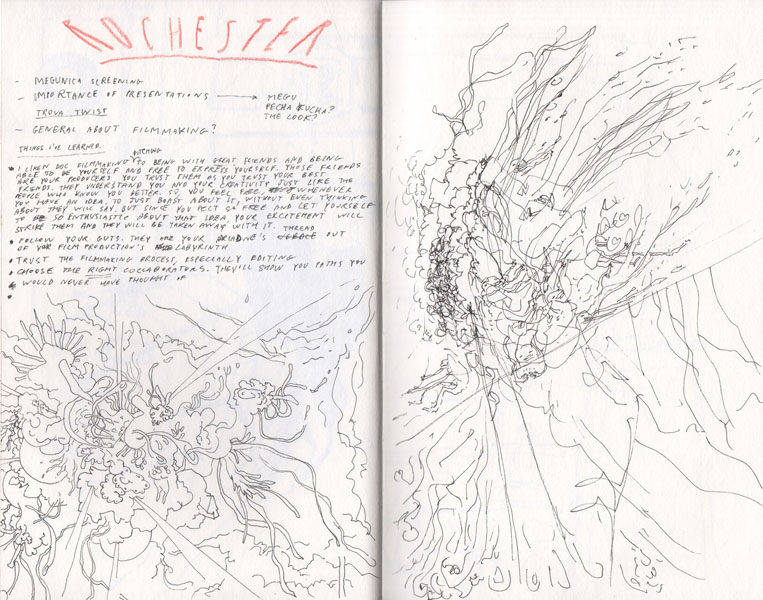 ROCHESTER
- MEGUNICA SCREENING
- IMPORTANCE OF PRESENTATIONS → MEGU
PECHA KUCHA?
THE LOOK?
TROVA TWIST
- GENERAL ABOUT FILMMAKING?
THINGS I'VE LEARNED.
PITCHING
• I LIKEN DOC FILMMAKING TO BEING WITH GREAT FRIENDS AND BEING
ABLE TO BE YOURSELF AND FREE TO EXPRESS YOURSELF. THOSE FRIENDS
ARE YOUR PRODUCERS YOU TRUST THEM AS YOU TRUST YOUR BEST
FRIENDS. THEY UNDERSTAND YOU AND YOUR CREATIVITY JUST LIKE THE
PEOPLE WHO KNOW YOU BETTER. SO, YOU FEEL FREE, WHENEVER
YOU HAVE AN IDEA, TO JUST BOAST ABOUT IT, WITHOUT EVEN THINKING
ABOUT THEY WILL SAY BUT SINCE YOU FELT SO FREE AND LET YOURSELF
TO BE SO ENTHUSIASTIC ABOUT THAT IDEA, YOUR EXCITEMENT WILL
STRIKE THEM AND THEY WILL BE TAKEN AWAY WITH IT.
THREAD
• FOLLOW YOUR GUTS. THEY ARE YOUR ARIADNE'S OUT
OF YOUR FILM PRODUCTION'S LABYRINTH
• TRUST THE FILMMAKING PROCESS, ESPECIALLY EDITING
• CHOOSE THE RIGHT COLLABORATORS. THEY'LL SHOW YOU PATHS YOU
WOULD NEVER HAVE THOUGHT OF
•